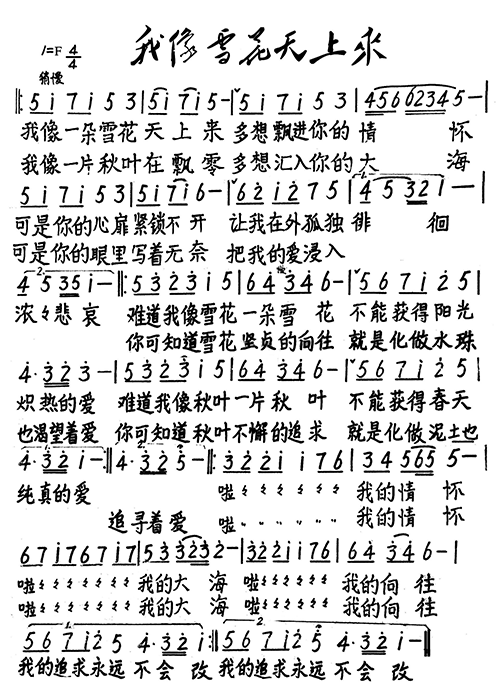 我像雪花天上来
1=F 4/4
稍慢
‖:5i7i53|5i7i5-|ˇ5i7i53|45660234 5-|
我像一朵雪花天上来多想飘进你的情怀
我像一片秋叶在飘零多想汇入你的大海
5i7i53|5i7i6-|ˇ62i276|ˇ45 32i-|
可是你的心扉紧锁不开 让我在外孤独徘徊
可是你的眼里写着无奈 把我的爱浸入
4 535i-‖:5323i5|64·346-|ˇ567i25|
浓々悲哀 难道我像雪花一朵雪花 不能获得阳光
你可知道雪花坚贞的向往 就是化做水珠
4·323-|5323i5|64·346-|ˇ567i25|
炽热的爱 难道我像秋叶一片秋叶 不能获得春天
也渴望着爱 你可知道秋叶不懈的追求 就是化做泥土也
4·32i-‖4·325-‖:3222i i76|34 5655-|
纯真的爱 啦々々々々々々 我的情怀
追寻着爱 啦〃〃々々々々 我的情怀
67i767i7|533232-|322ii76|64 346-|
啦々々々々々々 我的大海 啦々々々々々 我的向往
啦々々々々々々 我的大海 啦々々々々々 我的向往
567i25 4·32i:‖567i25 4·32i-‖
我的追求永远不会改 我的追求永远不会改